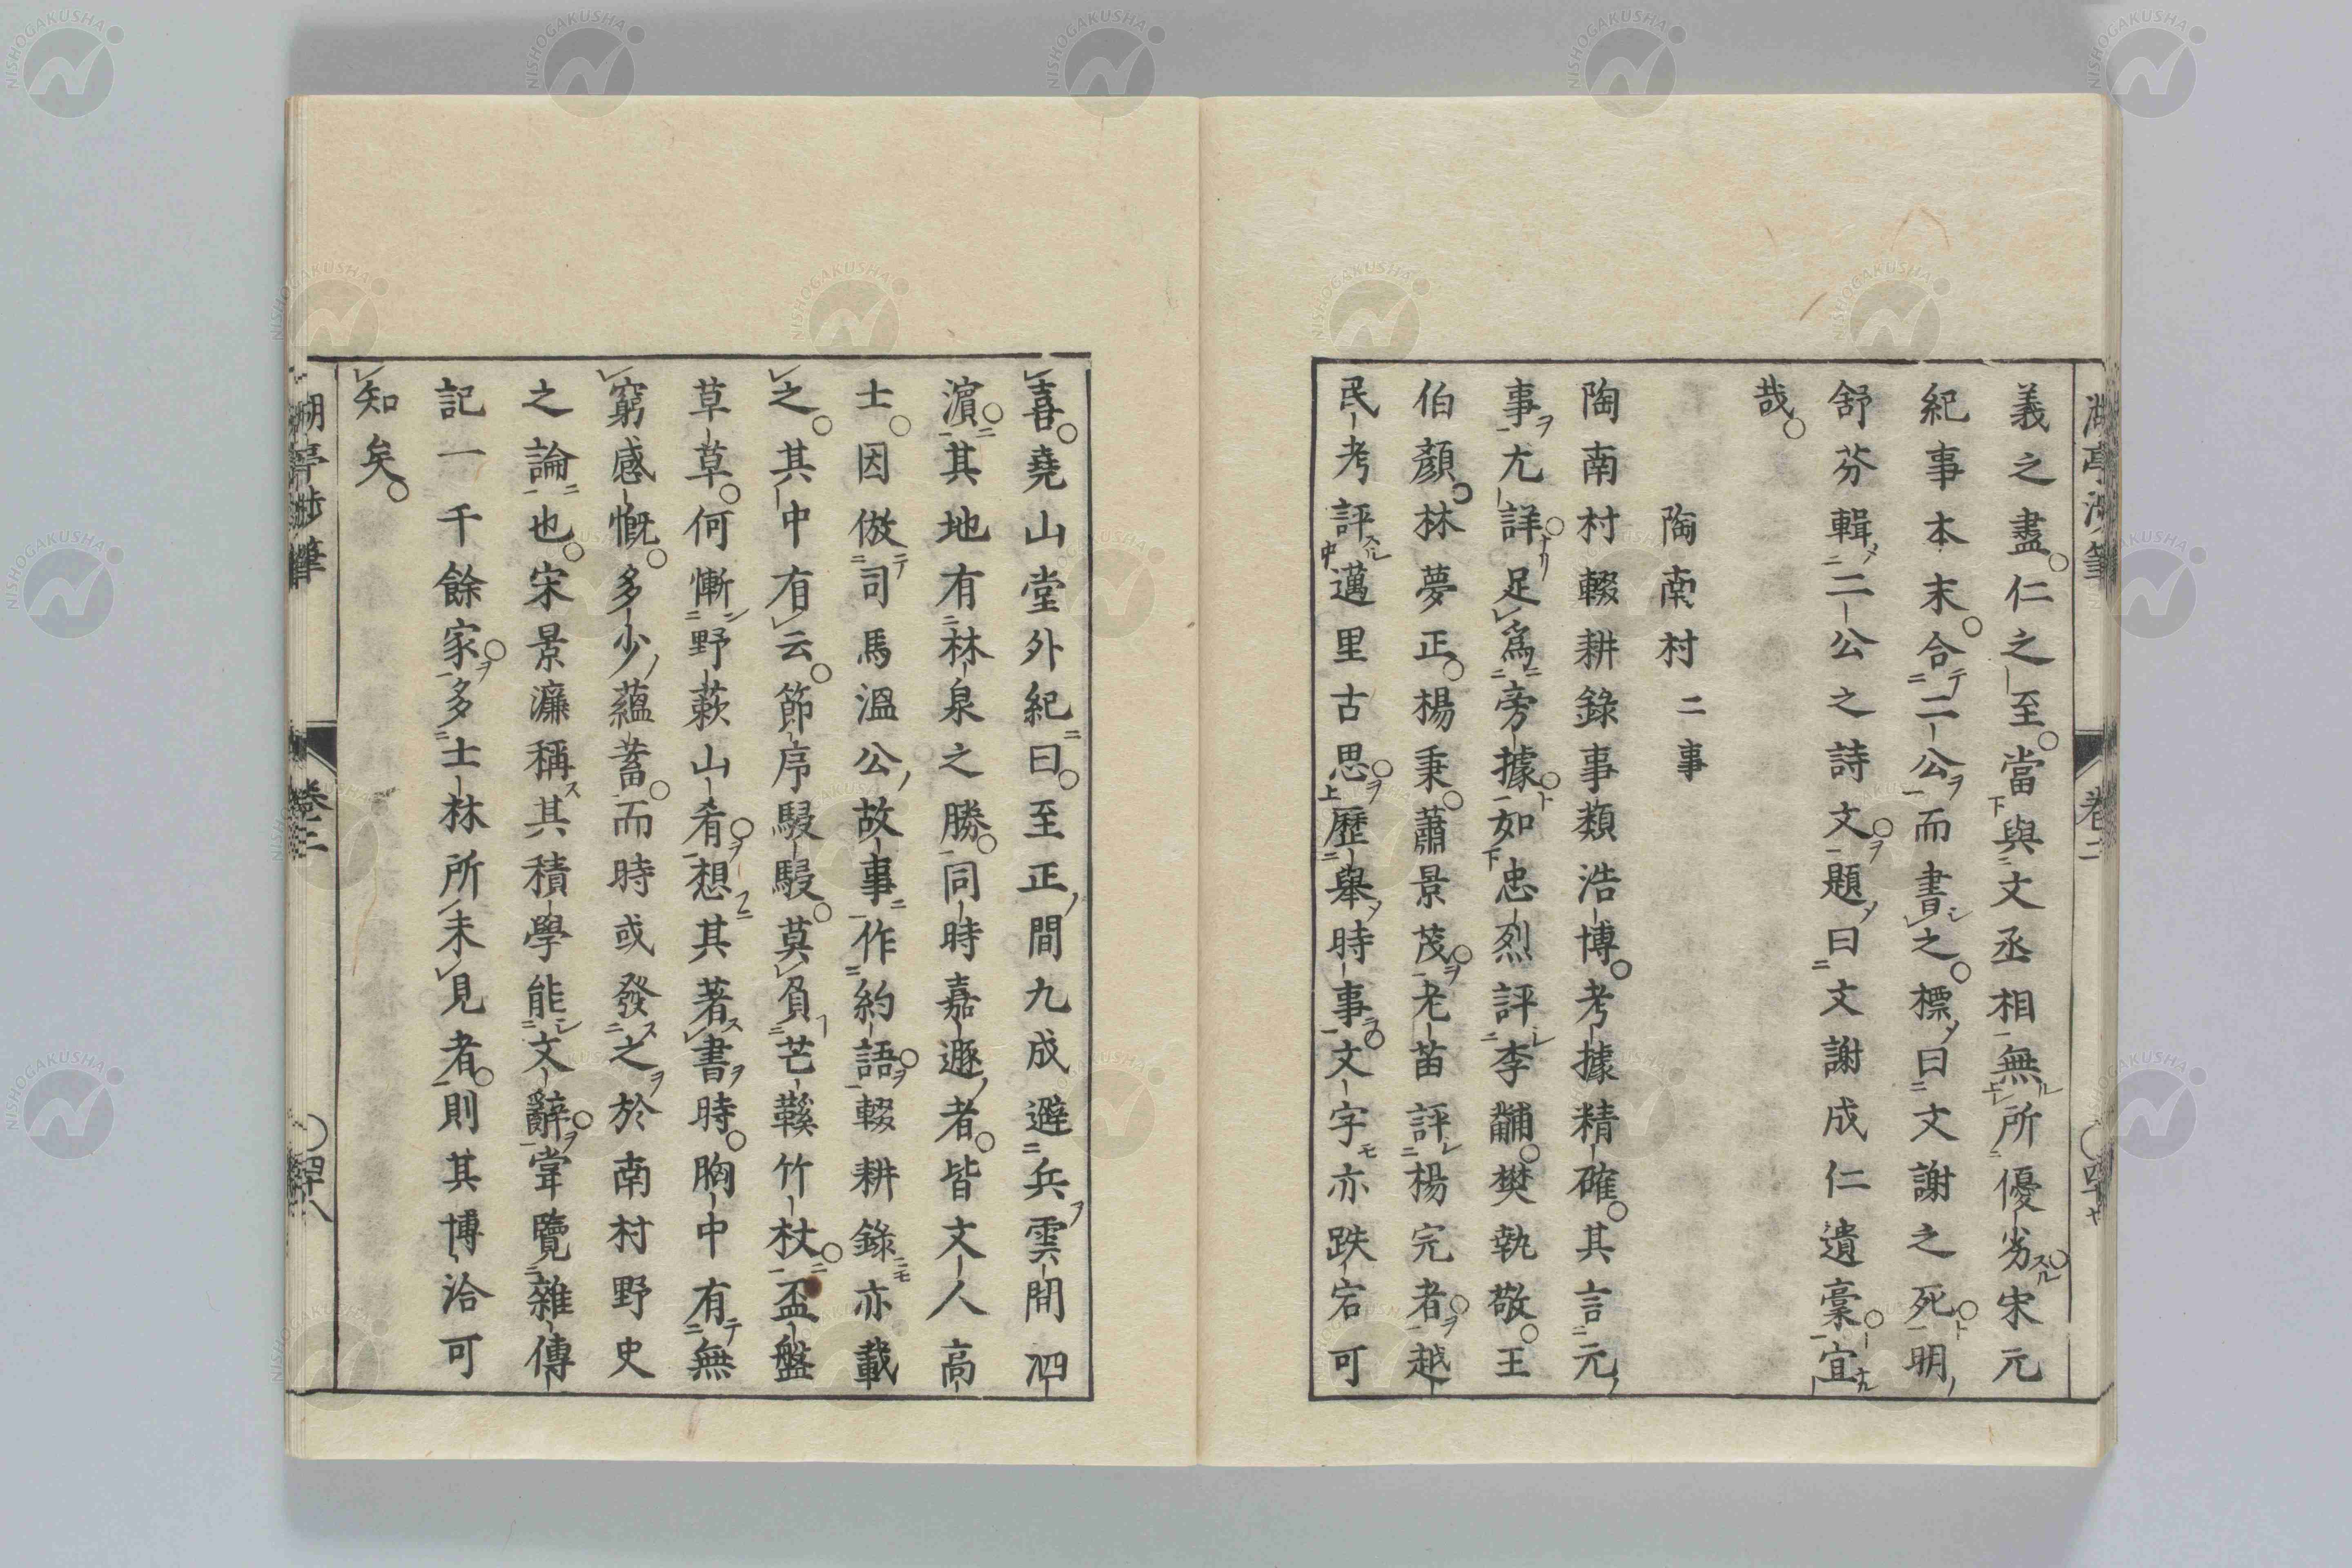 義之盡。仁之至。當與文丞相無所優劣。宋元
紀事本末。合二公而書之。標曰文謝之死。明
舒芬輯二公之詩文。題曰文謝成仁遺稾。宜
哉。
陶南村 二事
陶南村輟耕錄事類浩博。考據精確。其言元
事尤詳。足爲旁據。如忠烈評李黼。樊執敬。王
伯顏。林夢正。楊秉。蕭景茂。尤苗評楊完者。越
民考評邁里古思。歷舉時事。文字亦跌宕可
喜。堯山堂外紀曰。至正間九成避兵雲間泗
濵。其地有林泉之勝。同時嘉遯者。皆文人高
士。因倣司馬溫公故事作約語。輟耕錄亦載
之。其中有云。節序駸駸。莫負芒鞵竹杖。盃盤
草草。何慚野蔌山肴。想其著書時。胸中有無
窮感慨。多少蘊蓄。而時或發之於南村野史
之論也。宋景濂稱其積學能文辭。甞覽雜傳
記一千餘家。多士林所未見者。則其博洽可
知矣。
卷二
NISHOGAKUSHA